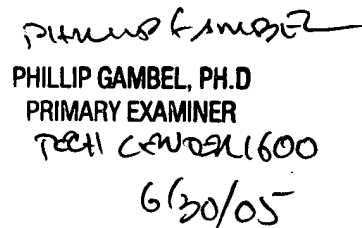 PHILLIP GAMBEL
PHILLIP GAMBEL, PH.D
PRIMARY EXAMINER
TECH CENTER 1600
6/30/05